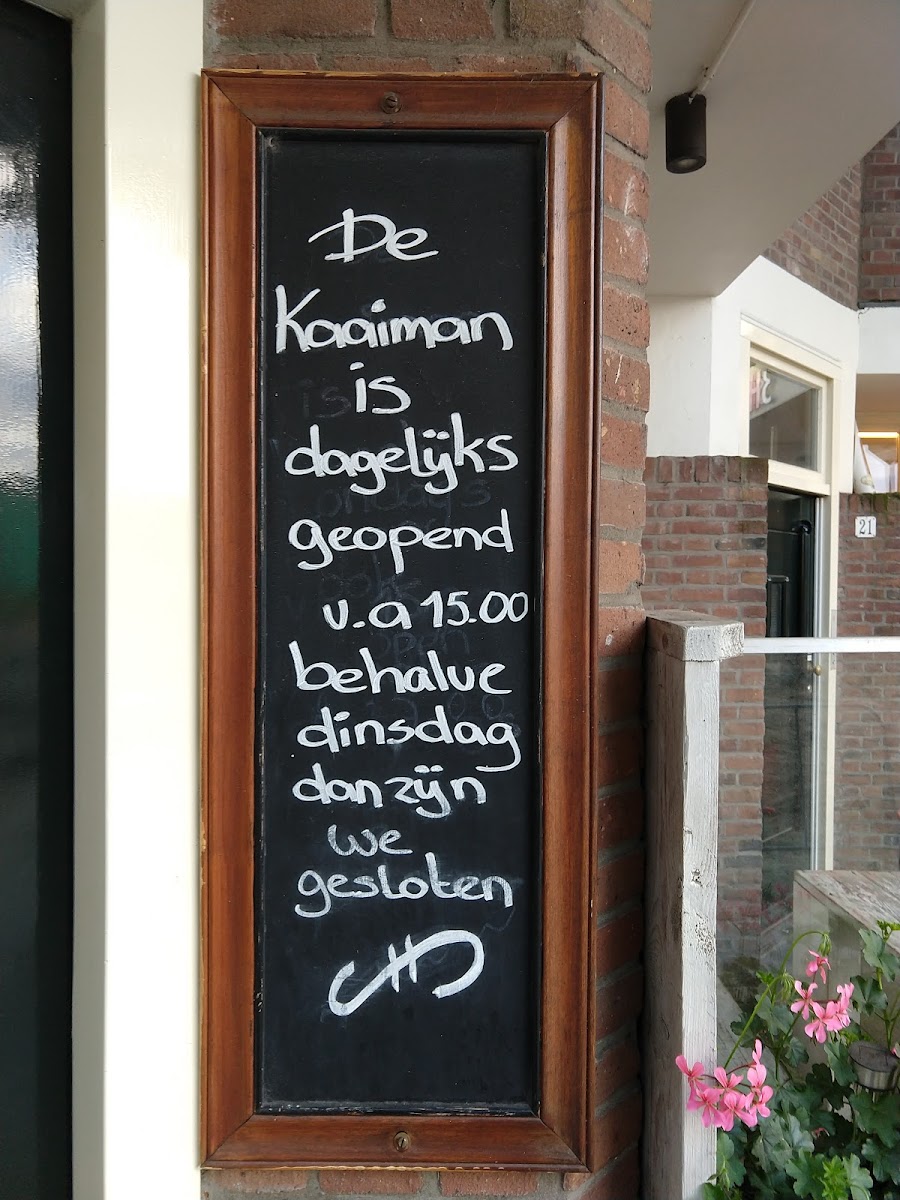 De
Kaaiman
is
dagelijks
geopend
v.a 15.00
behalve
dinsdag
dan zijn
we
gesloten
21